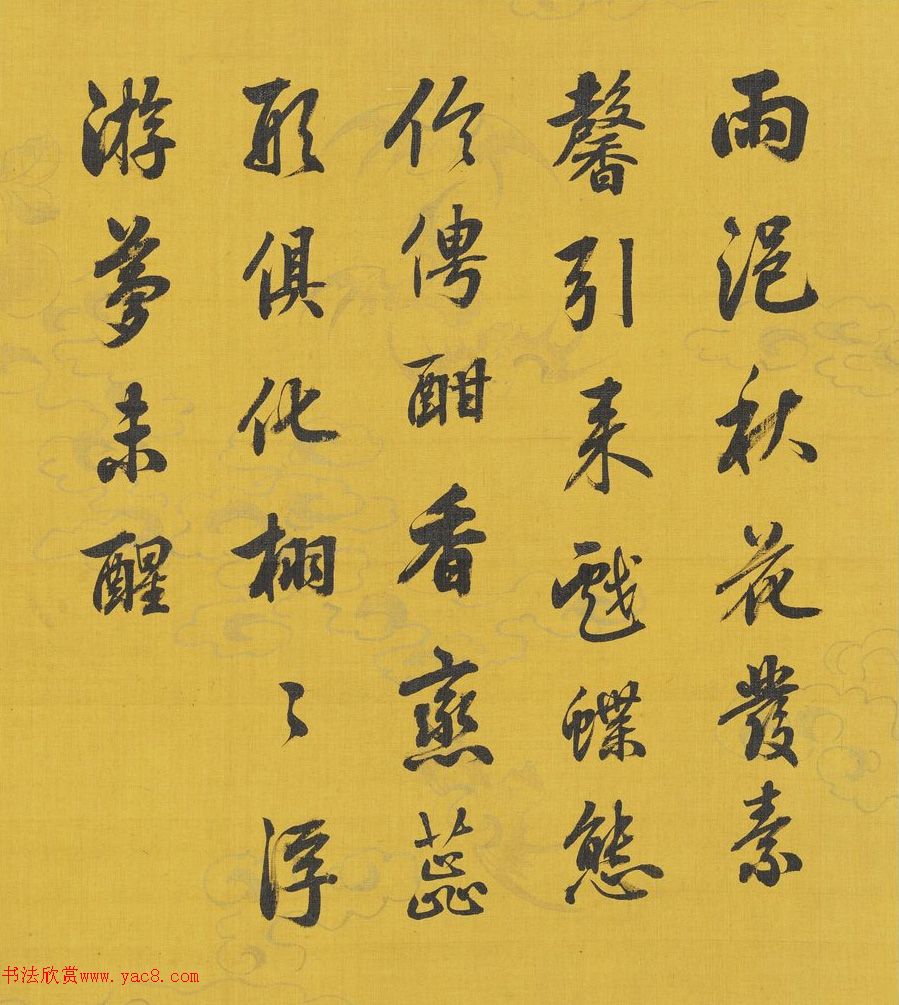 雨浥秋花發素
馨引来戲蝶態
伶俜酣香恋蕋
形俱化栩々浮
游夢未醒
书法欣赏www.yac8.com